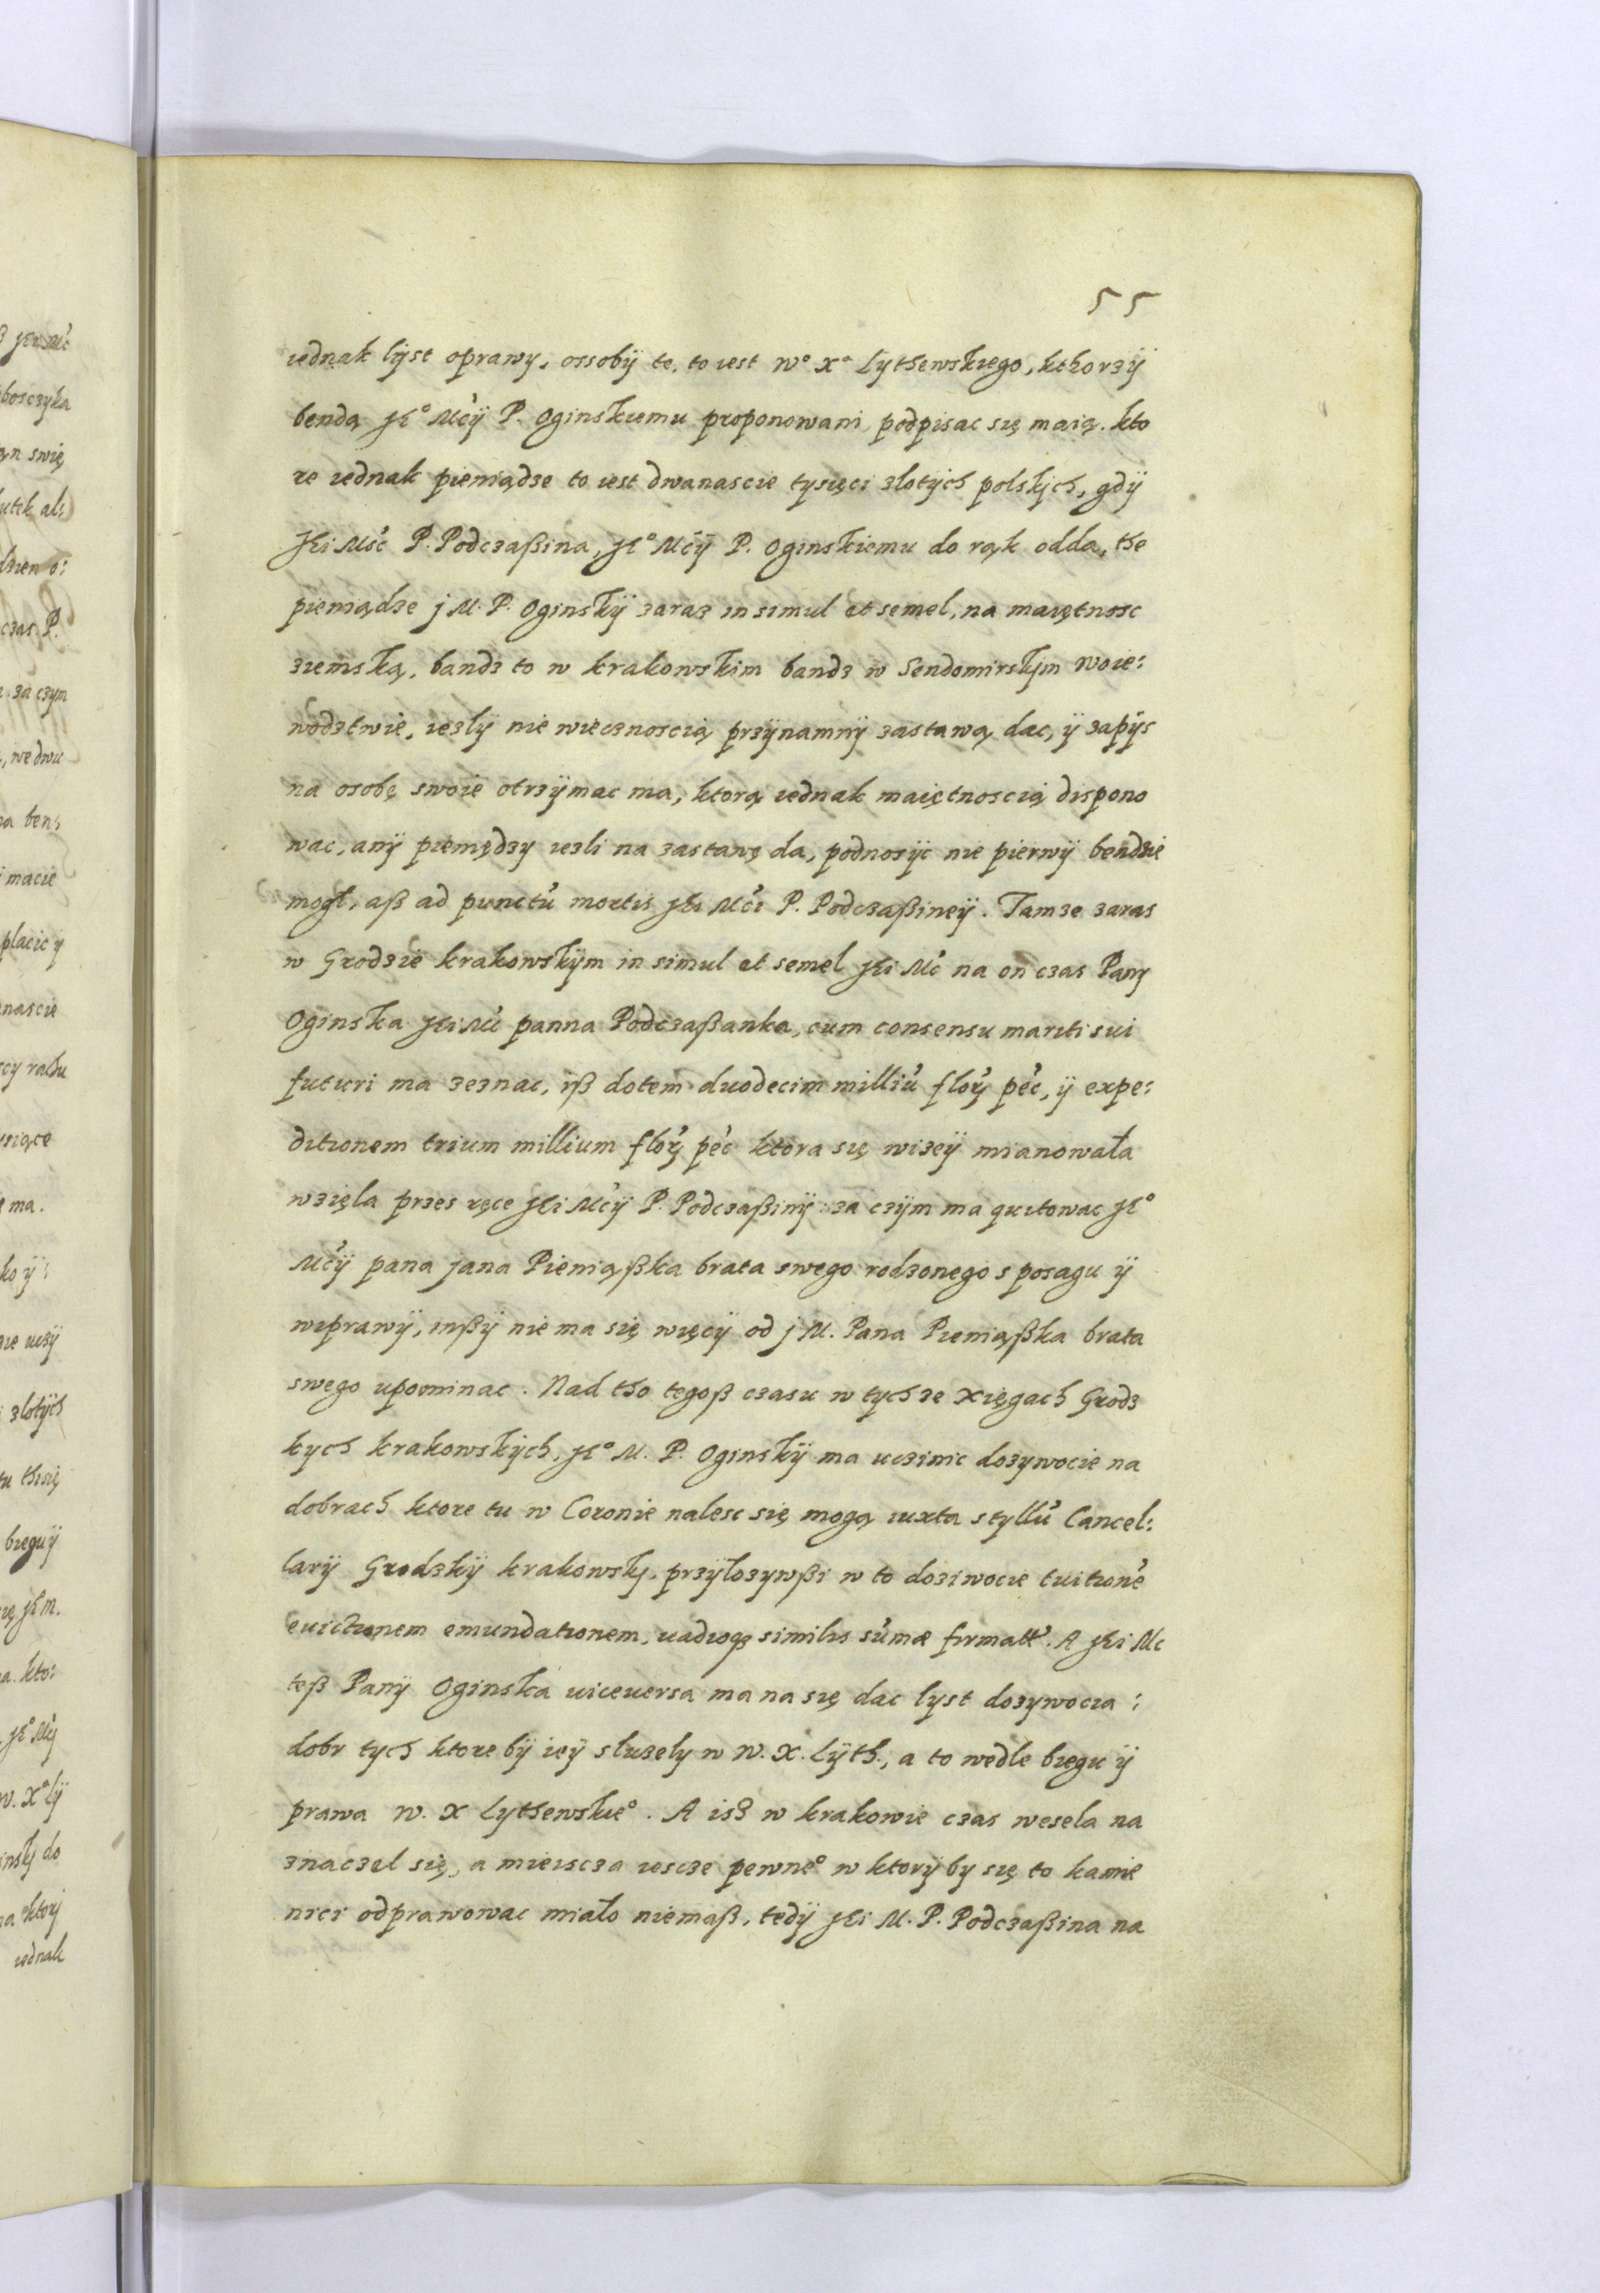 55
iednak lÿst oprawy, ossobÿ te, to iest Wº Xª Lythewskiego, kthorzÿ
bendą Jeº Mćÿ P. Oginskiemu proponowani podpisac się maią. kto
re iednak pieniądze to iest dwanascie tysięci złotÿch polskÿch, gdÿ
Jei Mść P. Podczaßina, Jeº Mćÿ P. Oginskiemu do rąk odda, the
pieniądze j M. P. Oginskÿ zaraz in simul et semel, na maiętnosc
ziemską, bandz to w krakowskim bandz w Sendomirskÿm Woie:
wodztwie, iezlÿ nie wiecznoscią przÿnamnÿ zastawą dac, ÿ zapÿs
na osobę swoie otrzÿmac ma, ktorą iednak maiętnoscią dispono
wac, anÿ pieniędzy iezli na zastawę da, podnosÿc nie pierwÿ bendzie
mogł, aß ad punctu mortis Jei Mći P. Podczaßineÿ. Tamze zaras
w Grodzie krakowskÿm in simul et semel Jei Mć na on czas Pany
Oginska Jei Mć panna Podczaßanka, cum consensu mariti sui
futuri ma zeznac, iß dotem duodecim milliu flor peć, ÿ expe:
ditionem trium millium flor peć ktora się wizeÿ mianowała
wzięla przes ręce Jei Mćÿ P. Podczaßinÿ: za czÿm ma quitowac Jeº
Mćÿ pana Jana Pieniąßka brata swego rodzonego s posagu ÿ
wiprawÿ, inßÿ nie ma się więcÿ od j M. Pana Pieniąßka brata
swego upominac. Nad tho tegoß czasu w tych ze xięgach Grodz
kych krakowskÿch, Jeº M. P. Oginskÿ ma uczinic dozywocie na
dobrach ktore tu w Coronie nalesc się mogą iuxta styllu Cancel:
larÿ Grodzkÿ krakowskÿ, przÿlozywßi w to doziwocie tuitione
euictionem emundationem, uadioq3 similis sumæ firmatt. A Jei Mc
teß Panÿ Oginska uiceuersa ma na się dac lyst dozywocia:
dobr tych ktore bÿ ieÿ sluzely w W. X. Lÿth., a to wedle biegu ÿ
prawa W. X Lythewskieº. A isz w krakowie czas wesela na
znaczel się, a mieiscza iescze pewneº w ktorÿ by się to kamie
nici odprawowac miało niemaß, tedÿ Jei M. P. Podczaßina na